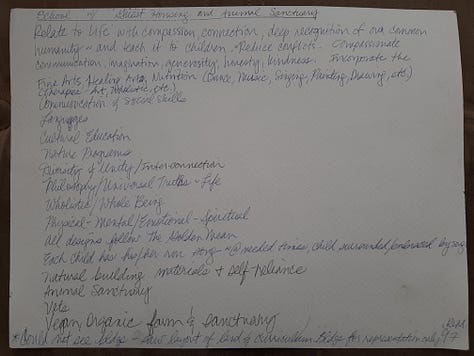 School w/ Guest Housing and Animal Sanctuary
Relate to Life with compassion, connection, deep recognition of our common
humanity - and teach it to children. Reduce conflicts. Compassionate
communication, imagination, generosity, honesty, kindness. Incorporate the
Fine Arts, Healing Arts, Nutrition (Dance, Music, Singing, Painting, Drawing, etc.)
(Therapies - Art, Holistic, etc.)
Communication & Social Skills
Languages
Cultural Education
Nature Programs
Diversity & Unity/Interconnection
Philosophy/Universal Truths - Life
Wholistic/Whole Being
Physical-Mental/Emotional-Spiritual
All designs follow the Golden Mean
Each child has his/her own song - @ needed times, child surrounded, embraced by song
Natural building materials & self reliance
Animal Sanctuary
Vets
Vegan, Organic farm & sanctuary
*Could not see bldgs - saw layout of land & curriculum. Bldgs for representation only.
97